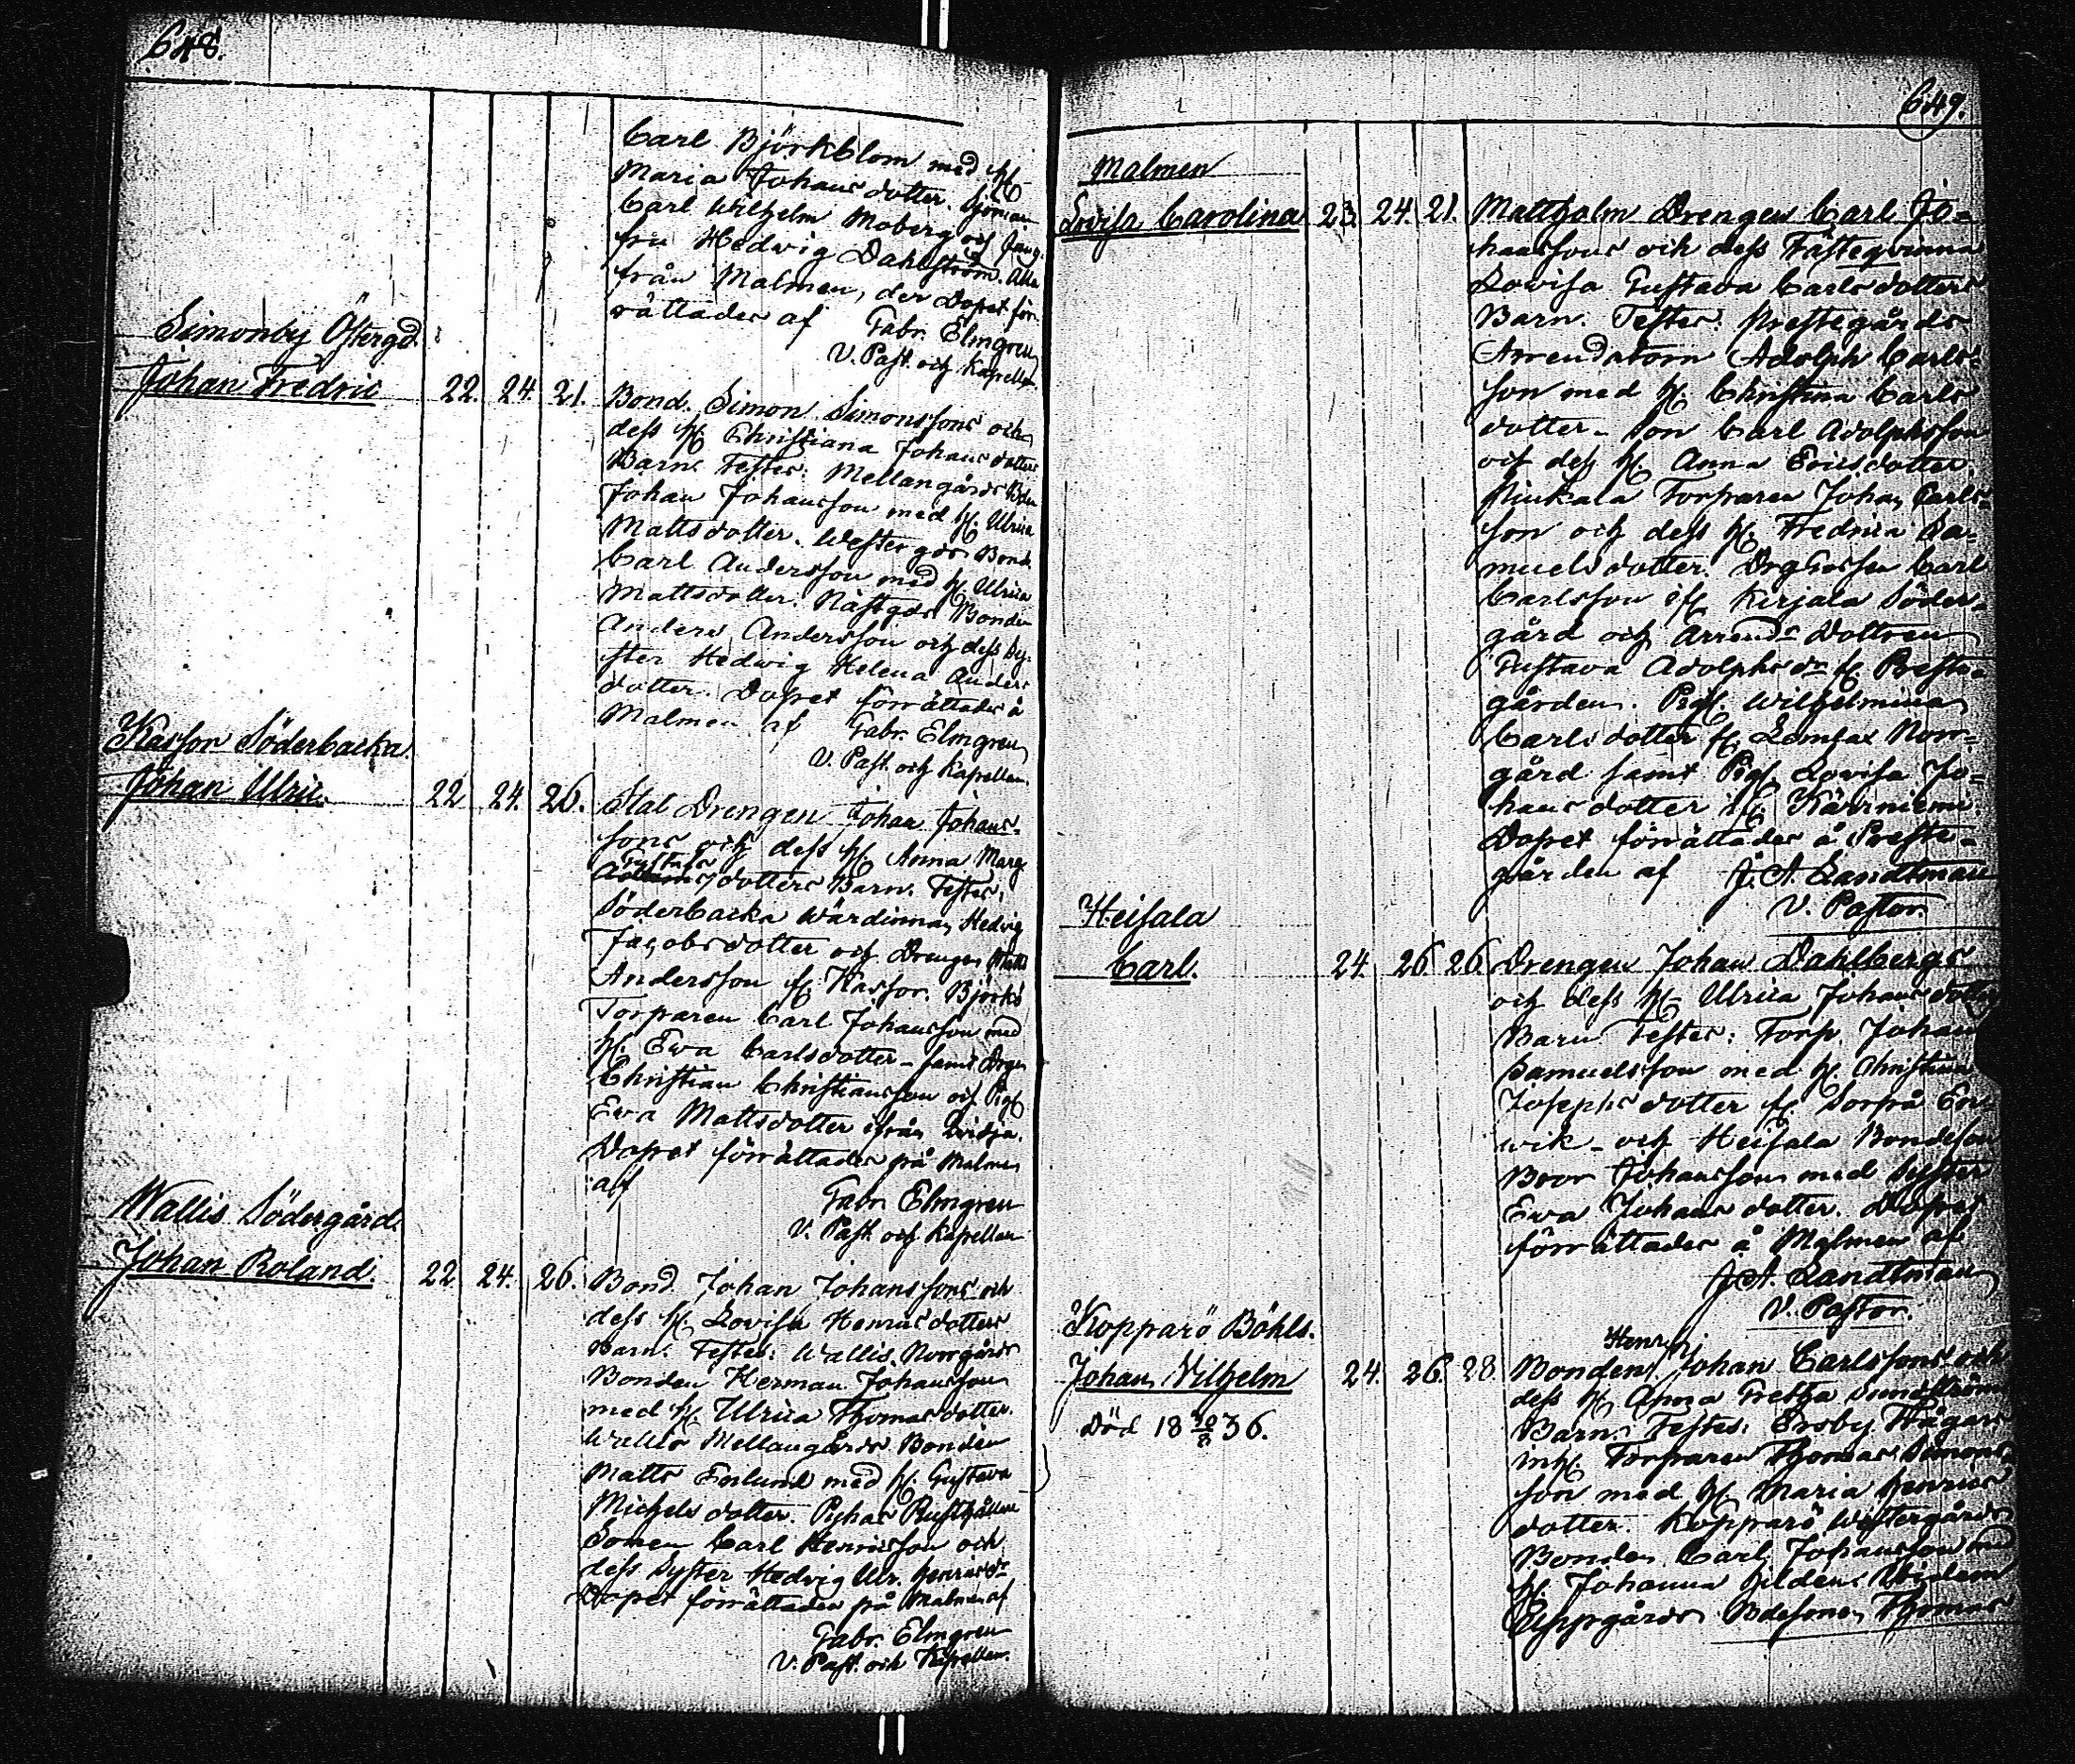 648.
Carl Björkblom med h.
Maria Johansdotter. Sjöman
Carl Wilhelm Moberg och Jung-
fru Hedwig Dahlström. Alla
från Malmen, der Dopet för-
rättades af Gabr. Elmgren
V. Past. och Kapellan.
Simonby Östergd.
Johan Fredric 22. 24. 21. Bond. Simon Simonssons och
dess h. Christiana Johansdotters
Barn. Testes: Mellangårds Bonden
Johan Johansson med h. Ulrica
Mattsdotter. Westergårds Bond.
Carl Andersson med h. Ulrica
Mattsdotter. Bonden
Anders Andersson och dess Sy-
ster Hedwig Helena Anders
dotter. Dopet förrättades å
Malmen af Gabr. Elmgren
V. Past. och Kapellan.
Kasfor Söderbacka
Johan Ulric. 22 24. 26. Stat Drengen Johan Johans-
sons och dess h. Anna Marg.
Gustafs
dotters Barn. Testes:
Söderbacka Wärdinnan Hedvig
Jacobsdotter och Drengen Matts
Andersson fr. Kasfor. Björkö
Torparen Carl Johansson med
h. Ewa Carlsdotter – samt Drgn
Christian Christiansson och Pig.
Ewa Mattsdotter ifrån
Dopet förrättades på Malmen
af Gabr. Elmgren
V. Past. och Kapellan
Wallis Södergård.
Johan Roland. 22 24. 26. Bond. Johan Johanssons och
dess h. Lovisa Henricsdotters
Barn. Testes: Wallis Norrgårds
Bonden Herman Johansson
med h. Ulrica Thomasdotter.
Wallis Mellangårds Bonden
Matts Enlund med h. Gustava
Michelsdotter. Rusthållare
Sonen Carl Henricsson och
dess Syster Hedvig Ulr. Henricsdr
Dopet förrättades på Malmen af
Gabr. Elmgren
V. Past. och Kapellan.
649.
Malmen
Lovisa Carolina 23. 24. 21. Mattholm Drengen Carl Jo-
hanssons och dess Fästeqvinna
Lovisa Gustava Carlsdotters
Barn. Testes: Prestegårds
Arrendatorn Adolph Carls-
son med h. Christina Carls
dotter – Son Carl Adolphsson
och dess h. Anna Ericsdotter.
Torparen Johan Carls-
son och dess h. Fredrica Sa-
muelsdotter. Carl
Carlsson ifr. Kirjala Söder-
gård och Arrends Dottren
Gustava Adolphs dr fr. Preste-
gården. Pig. Wilhelmina
Carlsdotter fr. Norr-
gård samt Pig. Lovisa Jo-
hansdotter ifr. Kärrniemi.
Dopet förrättades å Preste-
gården af J. A. Sandtman
V. Pastor.
Heisala
Carl. 24. 26 26. Drengen Johan Dahlbergs
och dess h. Ulrica Johansdotters
Barn Testes: Torp. Johan
Samuelsson med h. Christina
Josephsdotter fr. Sorpå En-
wik – och Heisala Bondeson
Johansson med Syster
Ewa Johansdotter. Dopet
förrättades å Malmen af
J. A. Sandtman
V. Pastor.
Kopparö Böhls.
Henric
Johan Vilhelm 24. 26. 28. Bonden Johan Carlssons och
dess h. Anna Gretha Sundströms
Död 18 20/8 36.
Barn. Testes: Ersby
inh. Torparen Thomas Simons-
son med h. Maria Henrics
dotter. Kopparö Westergårds
Bonden Carl Johansson med
h. Johanna
Uppgårds Bdesonen Thomas